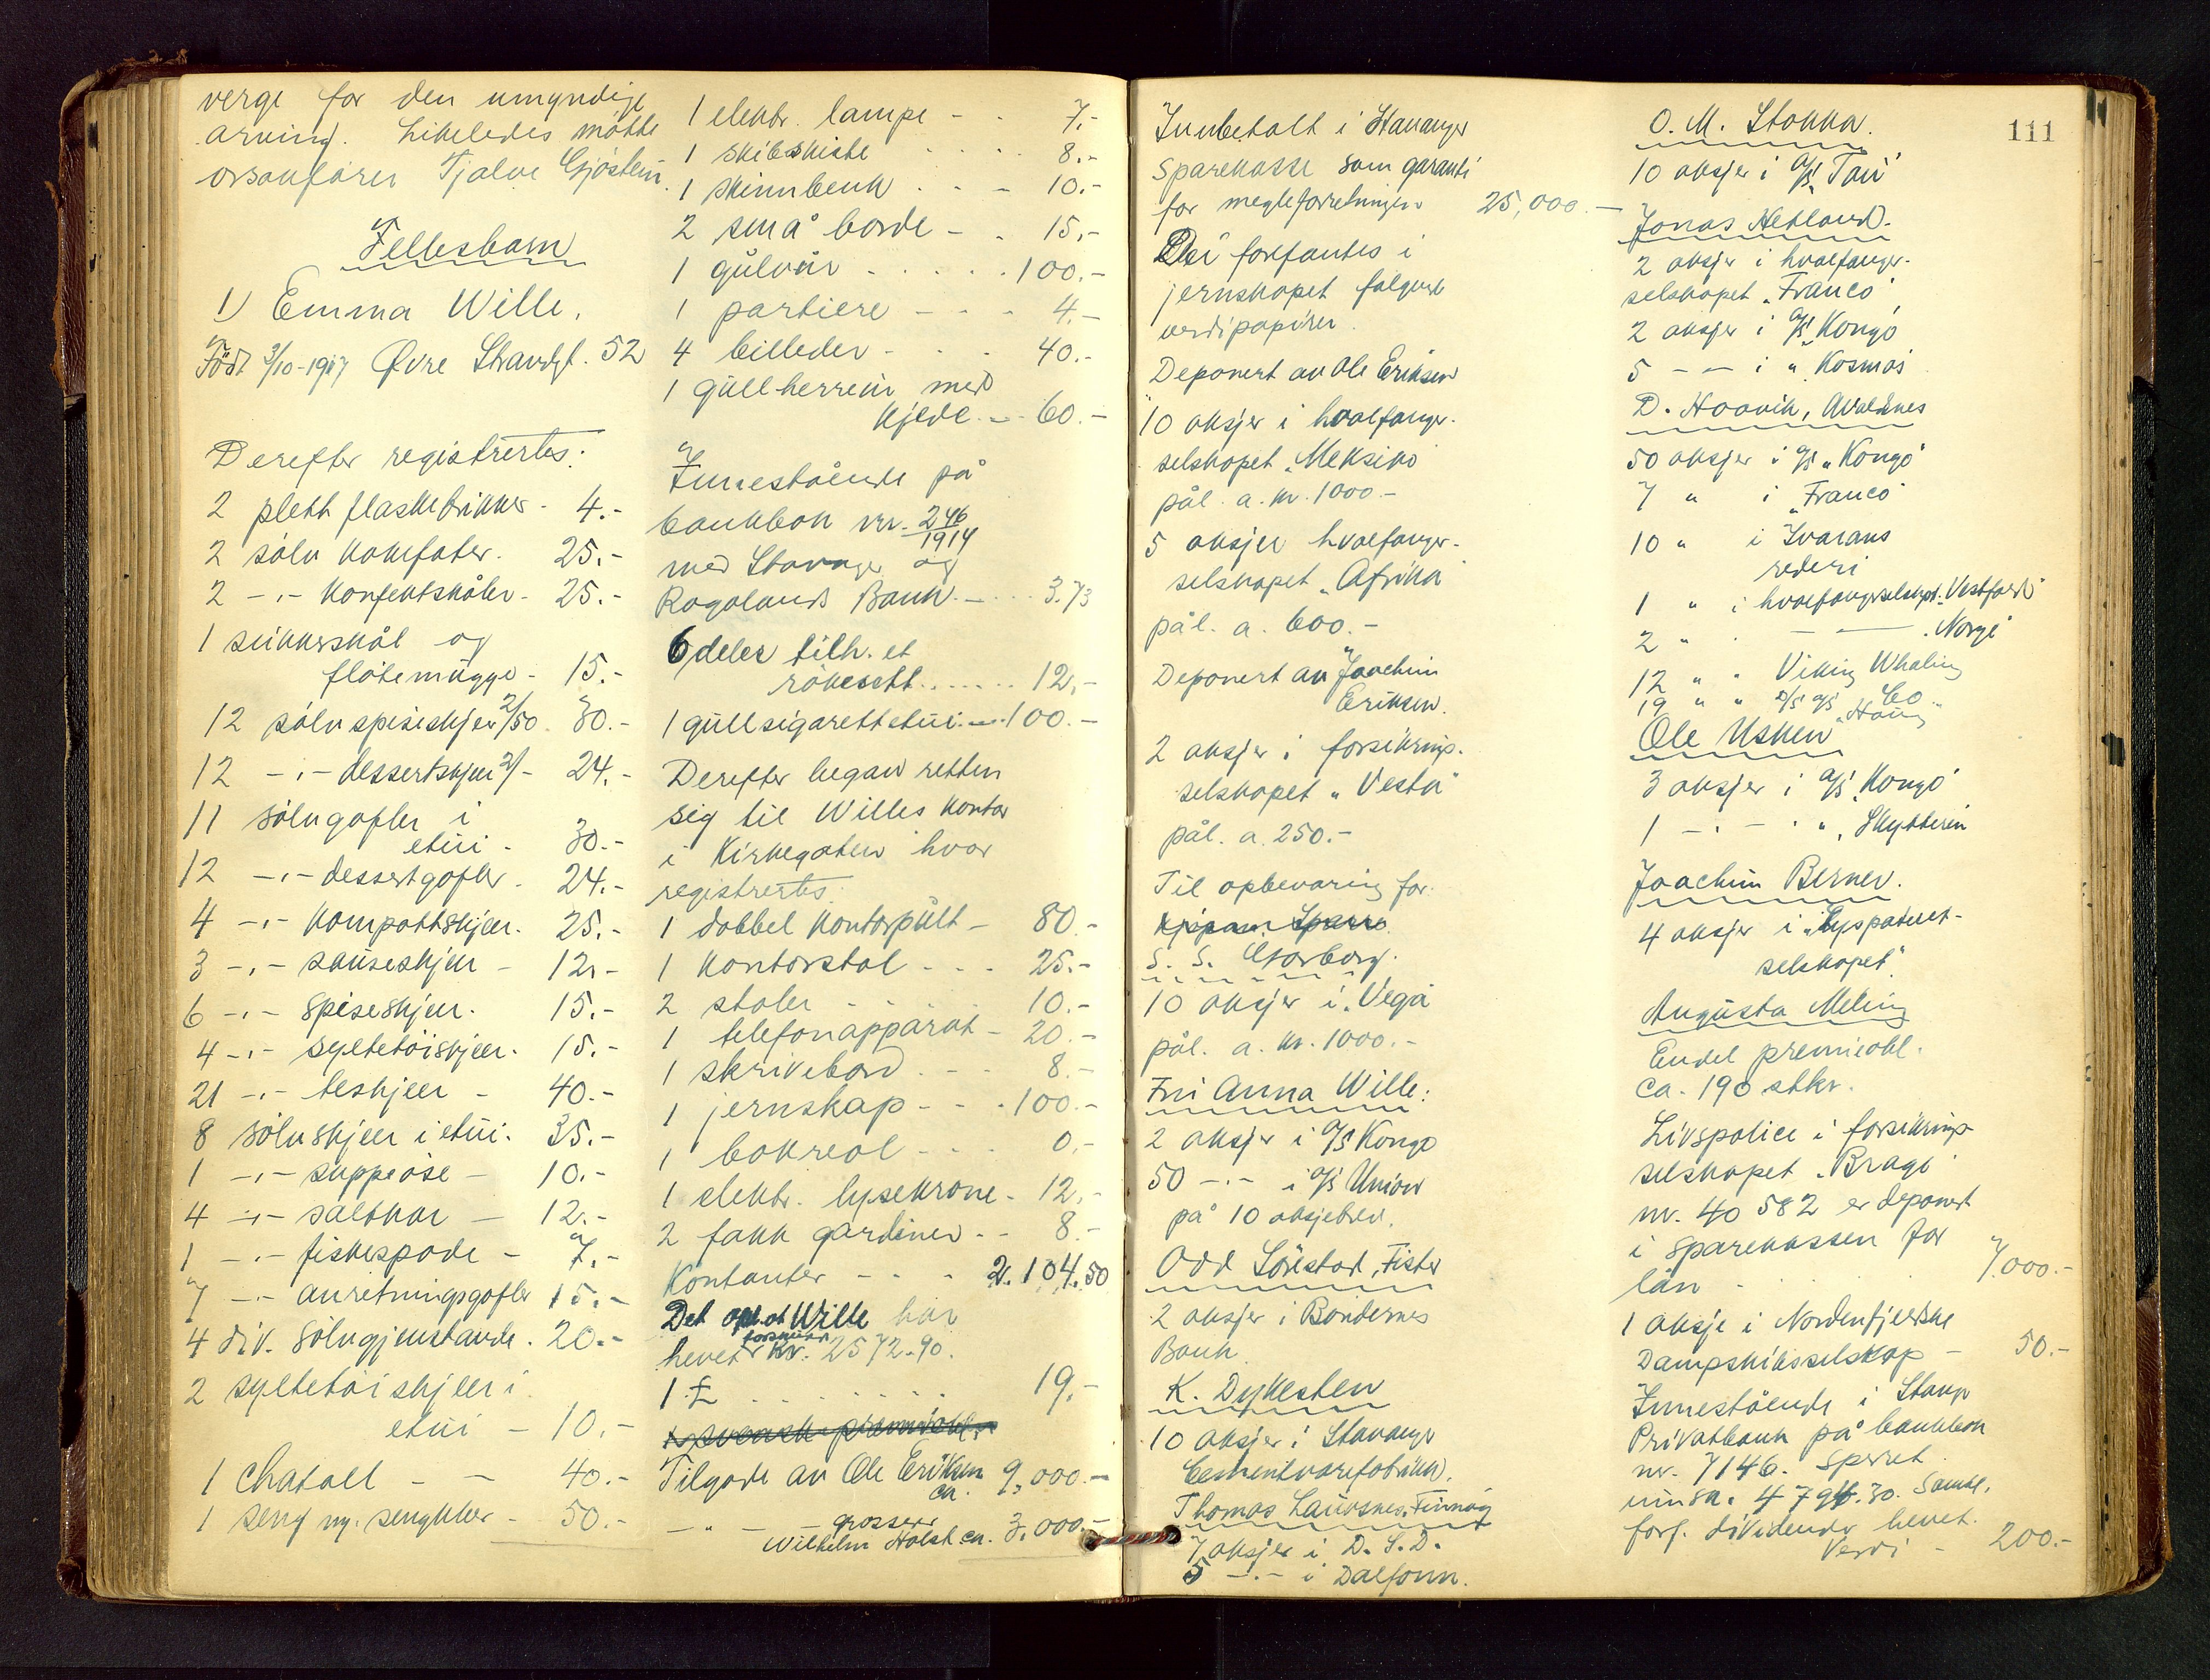 verge for den umyndige
arving. Likeledes mötte
orsakförer Tjalve Gjöstein.
Fellesbarn
1) Emma Wille,
Född 3/10-1917 Øvre Strandgt. 52
Derefter registrertes:
2 plett flaskebrikker - 4.-
2 sölv kakefater. 25.-
2 -"- Konfektskåler - 25.-
1 sukkerskål og
flötemugge - 15.-
12 sölv spiseskjeer 2/50 30.-
12 -"- dessertskjeer 2/- 24.-
11 sölvgafler i
etui - 30.-
12 -"- dessertgafler - 24.-
4 -"- Kompottskjeer. 25.-
3 -"- sauseskjeer - 12.-
6 -"- spiseskjeer. 15.-
4 -"- syltetöiskjeer. 15.-
21 -"- teskjeer - 40.-
8 sölvskjeer i etui. 35.-
1 -"- suppeöse - 10.-
4 -"- saltkar - 12.-
1 -"- fiskespade - 7.-
7 -"- anretningsgafler 15.-
4 div. sölvgjenstande. 20.-
2 syltetöiskjeer i
etui - 10.-
1 Chatoll - - 40.-
1 seng m. sengklær - 50.-
1 elektr. lampe - - 7.-
1 skibskiste 8.-
1 skinnbenk - 10.-
2 små borde - - 15.-
1 gulvur 100.-
1 portiere - - - 4.-
4 billeder - - 40.-
1 gullherreur med
kjede - 60.-
Innestående på
bankbok nr. 246/1914
med Stavanger og
Rogalands Bank - 3.73
6 deler tilh. et
rökesett 12.-
1 gullsigarettetui - 100.-
Derefter begav retten
sig til Willes kontor
i Kirkegaten hvor
registrertes:
1 dobbel kontorpult - 80.-
1 kontorstol - - - 25.-
2 stoler 10.-
1 telefonapparat - 20.-
1 skrivebord - - 8.-
1 jernskap - - - 100.-
1 bokreol - - - 0.-
1 elektr. lysekrone - 12.-
2 fakk gardiner - - 8.-
Kontanter - - - 2.104.50
Det opl. at Wille har
hevet forskudd Kr. 2572.90.
1 £ 19.-
1 svensk premieobl.
Tilgode av Ole Eriksen
ca. 9.000.-
-"- grosserer
Wilhelm Holst ca. 3.000.-
111
Innbetalt i Stavanger
Sparekasse som garanti
for meglerforretningen 25,000.-
Der forefantes i
jernskapet fölgende
verdipapirer.
Deponert av Ole Eriksen
10 aksjer i hvalfanger-
selskapet "Meksiko"
pål. a. kr. 1000.-
5 aksjer hvalfanger-
selskapet "Afrika"
pål. a. 600.-
Deponert av Joachim
Eriksen.
2 aksjer i forsikrings-
selskapet "Vesta"
pål. a. 250.-
Til opbevaring for:
S. S. Garborg.
10 aksjer i "Vega"
pål. a. kr. 1000.-
Fru Anna Wille:
2 aksjer i A/S Kongo
50 -"- i A/S Union
på 10 aksjebrev.
Odd Sörestad, Fister
2 aksjer iBöndernes
Bank
K. Dykesten
10 aksjer i Stavanger
Cementvarefabrikk.
Thomas Lauvsnes, Finnöy
7 aksjer i D. S. D.
5 -"- i Dalfonn.
O. M. Stokka.
10 aksjer i A/S "Tau"
Jonas Hetland.
2 aksjer i hvalfanger-
selskapet "Franco"
2 aksjer i A/S "Kongo"
5 - - i " "Kosmos"
D. Haavik, Avaldsnes
50 aksjer i A/S "Kongo"
7 " i "Franco"
10 " i Ivarans
rederi
1 " i hvalfangerselskapet "Vestfold"
2 " - - "Norge"
12 " " Viking Whaling
Co.
19 " " A/S "Haug"
Ole Usken
3 aksjer i A/S "Kongo"
1 - " - " "Skytteren"
Joachim Berner.
4 aksjer i "Lyspatent-
selskapet".
Augusta Meling
Endel premieobl.
ca. 190 stkr.
Livspolice i forsikrings-
selskapet "Brage"
nr. 40582 er deponert
i sparekassen for
lån - 7.000.-
1 aksje i Nordenfjeldske
Dampskibsselskap - 50.-
Innestående i Stavgr
Privatbank på bankbok
nr. 7146. Sperret
innsk. 4794.30. Samtl.
forf. dividender hevet.
Verdi - 200.-